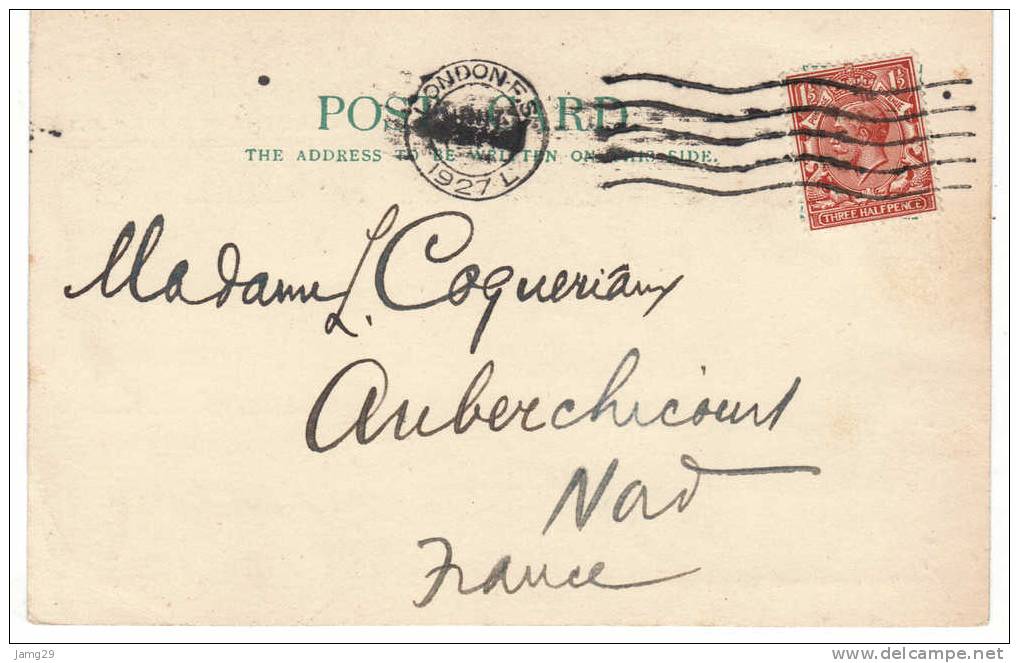 LONDON.F.S.
1927 L
1½ 1½
THREE HALFPENCE
POST CARD
THE ADDRESS TO BE WRITTEN ON THIS SIDE.
Madame L. Coqueriaux
Auberchicourt
Nord
France
Jamg29
www.delcampe.net